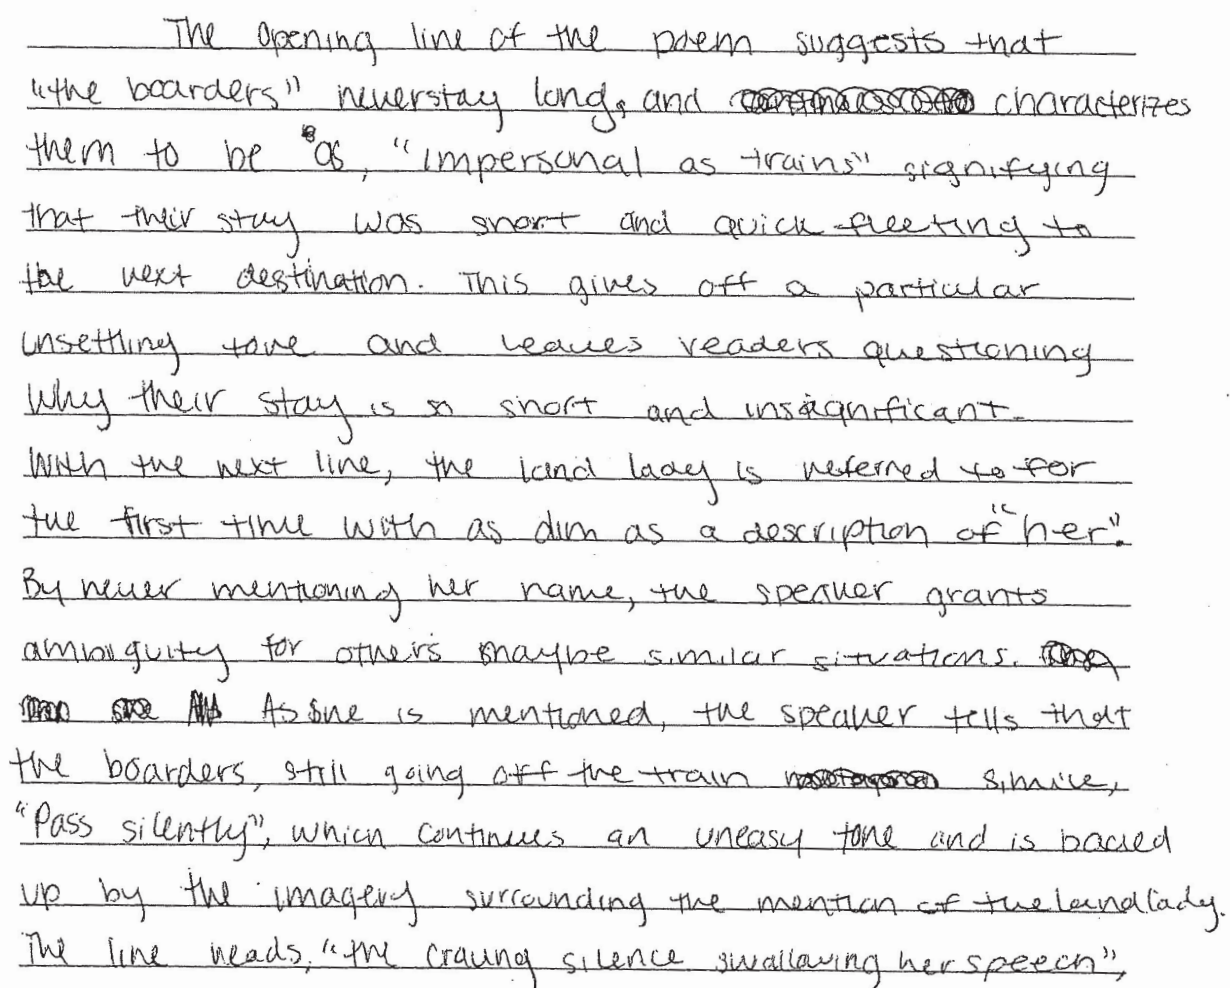 The opening line of the poem suggests that
"the boarders" never stay long, and characterizes
them to be as, "impersonal as trains" signifying
that their stay was short and quick fleeting to
the next destination. This gives off a particular
unsettling tone and leaves readers questioning
Why their stay is so short and insignificant.
With the next line, the land lady is referred to for
the first time with as dim as a description of "her".
By never mentioning her name, the speaker grants
ambiguity for others maybe similar situations.
As she is mentioned, the speaker tells that
the boarders, still going off the train simile,
"Pass silently", which continues an uneasy tone and is backed
up by the imagery surrounding the mention of the landlady.
The line reads, "the craving silence swallowing her speech",